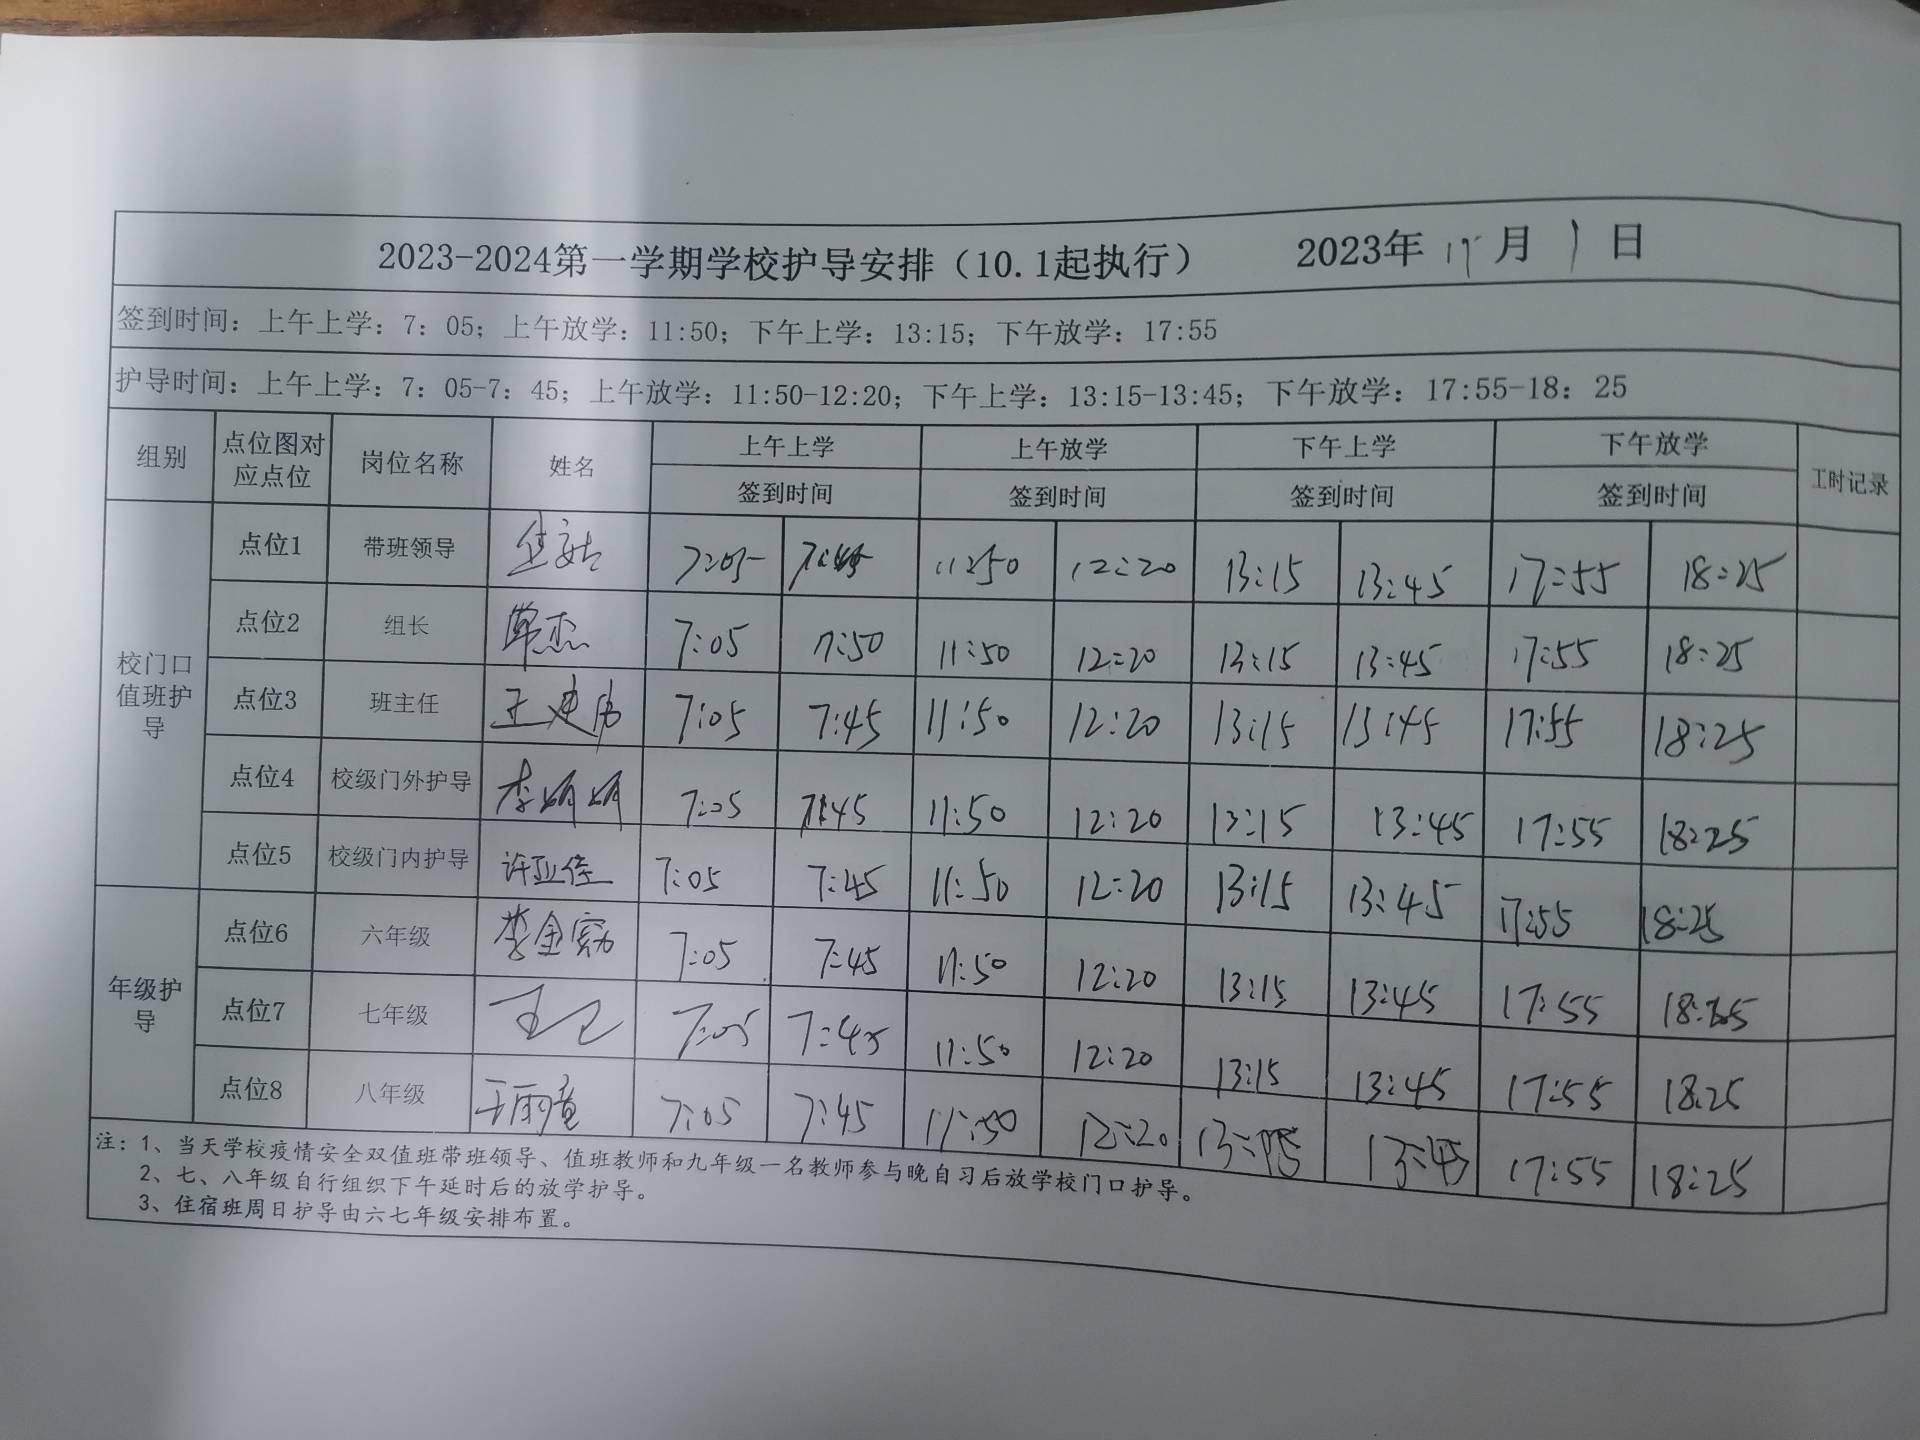 2023-2024第一学期学校护导安排（10.1起执行） 2023年 月 日
签到时间：上午上学：7：05；上午放学：11:50；下午上学：13:15；下午放学：17:55
护导时间：上午上学：7：05-7：45；上午放学：11:50-12:20；下午上学：13:15-13:45；下午放学：17:55-18：25
组别 点位图对应点位 岗位名称 姓名 上午上学 上午放学 下午上学 下午放学 工时记录
签到时间 签到时间 签到时间 签到时间
校门口值班护导
点位1 带班领导 7:05 7:45 11:50 12:20 13:15 13:45 17:55 18:25
点位2 组长 常杰 7:05 7:50 11:50 12:20 13:15 13:45 17:55 18:25
点位3 班主任 王建伟 7:05 7:45 11:50 12:20 13:15 13:45 17:55 18:25
点位4 校级门外护导 李娟娟 7:05 7:45 11:50 12:20 13:15 13:45 17:55 18:25
点位5 校级门内护导 许亚佳 7:05 7:45 11:50 12:20 13:15 13:45 17:55 18:25
年级护导
点位6 六年级 7:05 7:45 11:50 12:20 13:15 13:45 17:55 18:25
点位7 七年级 7:05 7:45 11:50 12:20 13:15 13:45 17:55 18:25
点位8 八年级 王雨童 7:05 7:45 11:50 12:20 13:15 13:45 17:55 18:25
注：1、当天学校疫情安全双值班带班领导、值班教师和九年级一名教师参与晚自习后放学校门口护导。
2、七、八年级自行组织下午延时后的放学护导。
3、住宿班周日护导由六七年级安排布置。